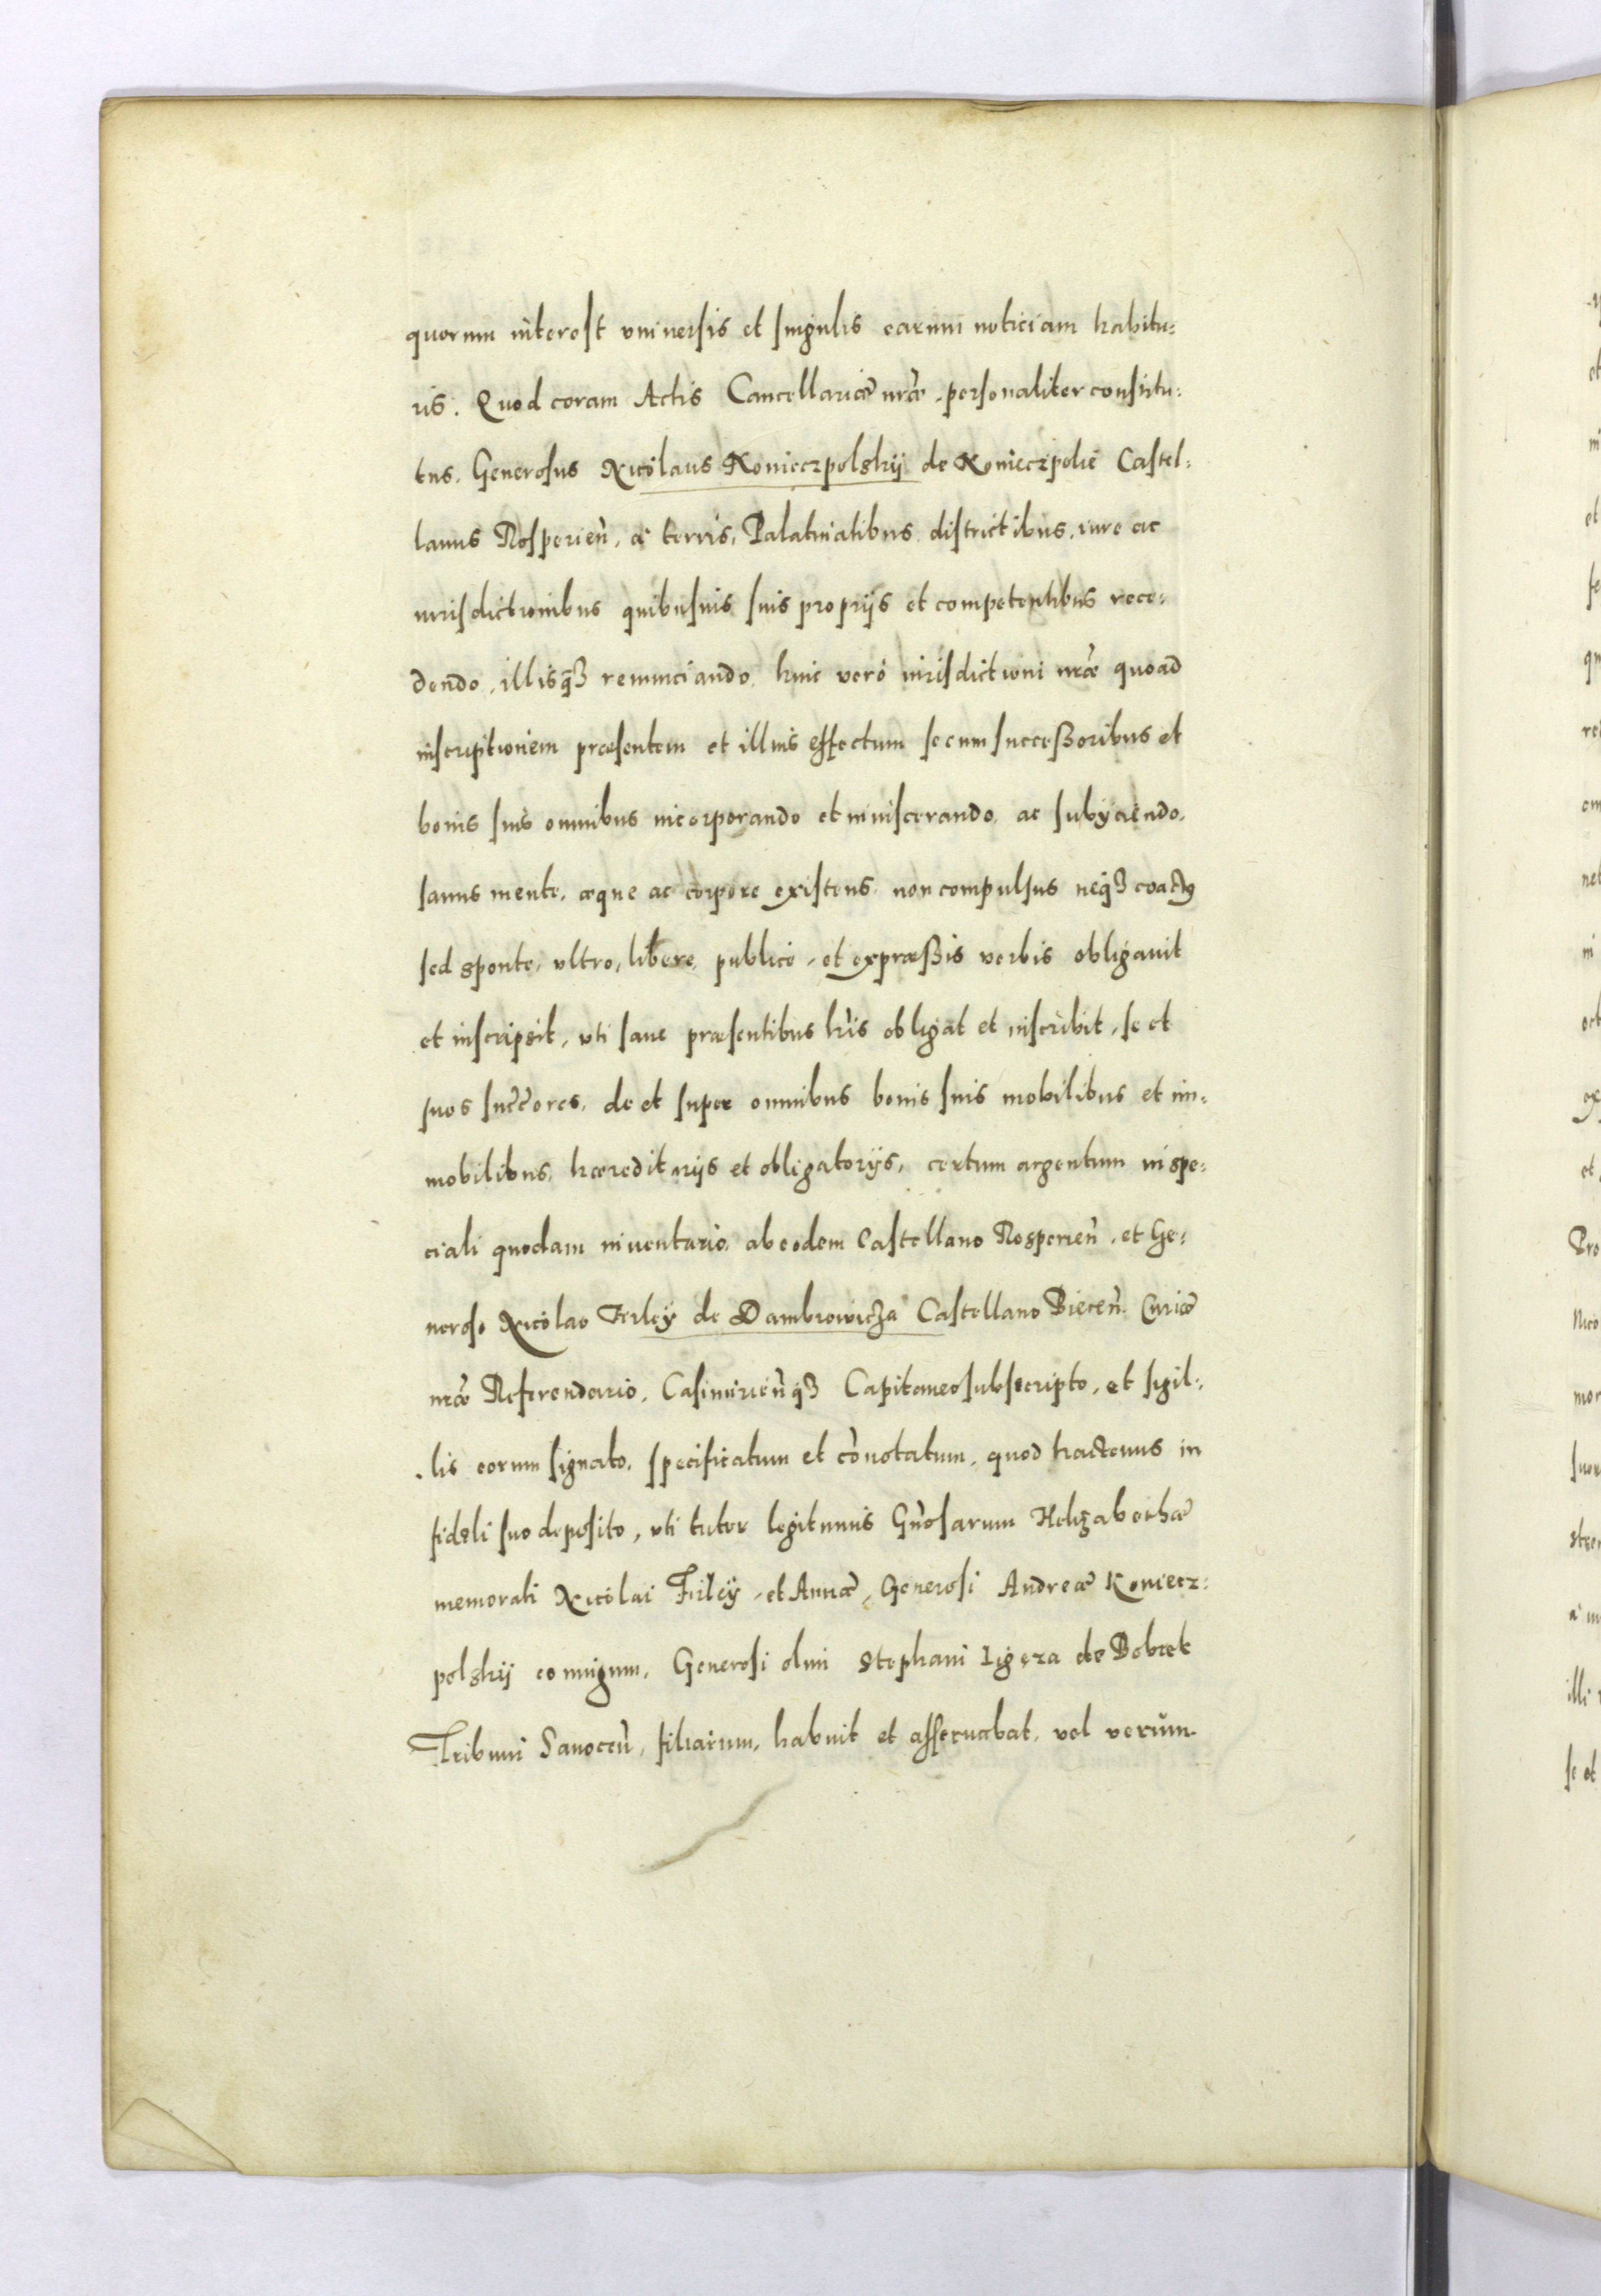 quorum interest vniuersis et singulis earum noticiam habitu:
ris. Quod coram Actis Cancellariæ nræ, personaliter constitu:
tus, Generosus Nicolaus Konieczpolskij de Koniecźpolie Castel:
lanus Rosperien̄, à terris, Palatinatibus, districtibus, iure ac
iurisdictionibus quibusuis suis proprijs et competentibus rece:
dendo, illisq3 renunciando, huic verò iurisdictioni nræ quoad
inscriptionem præsentem et illius effectum se cum successoribus et
bonis suis omnibus incorporando et inuiscerando, ac subijciendo,
sanus mente, æque ac corpore existens, non compulsus neq3 coactus
sed sponte, vltro, libere, publice, et expræssis verbis obligauit
et inscripsit, vti sane præsentibus lris obligat et inscribit, se et
suos succ̄ores, de et super omnibus bonis suis mobilibus et im:
mobilibus, hæreditarijs et obligatorijs, certum argentum in spe:
ciali quodam inuentario, ab eodem Castellano Rosperien̄, et Ge:
neroso Nicolao Ferleÿ de Dambrowicza Castellano Biecen̄ Curiæ
nræ Referendario, Casimirien̄q3 Capitaneo subscripto, et sigil:
lis eorum signato, specificatum et cōnotatum, quod hactenus in
fideli suo deposito, vti tutor legitimus Gn̄osarum Helizabethæ
memorati Nicolai Firleÿ, et Annæ, Generosi Andreæ Koniecz:
polskij coniugum, Generosi olim Stephani Ligeza de Bobrek
Tribuni Sanocen̄, filiarum, habuit et asseruabat, vel verum